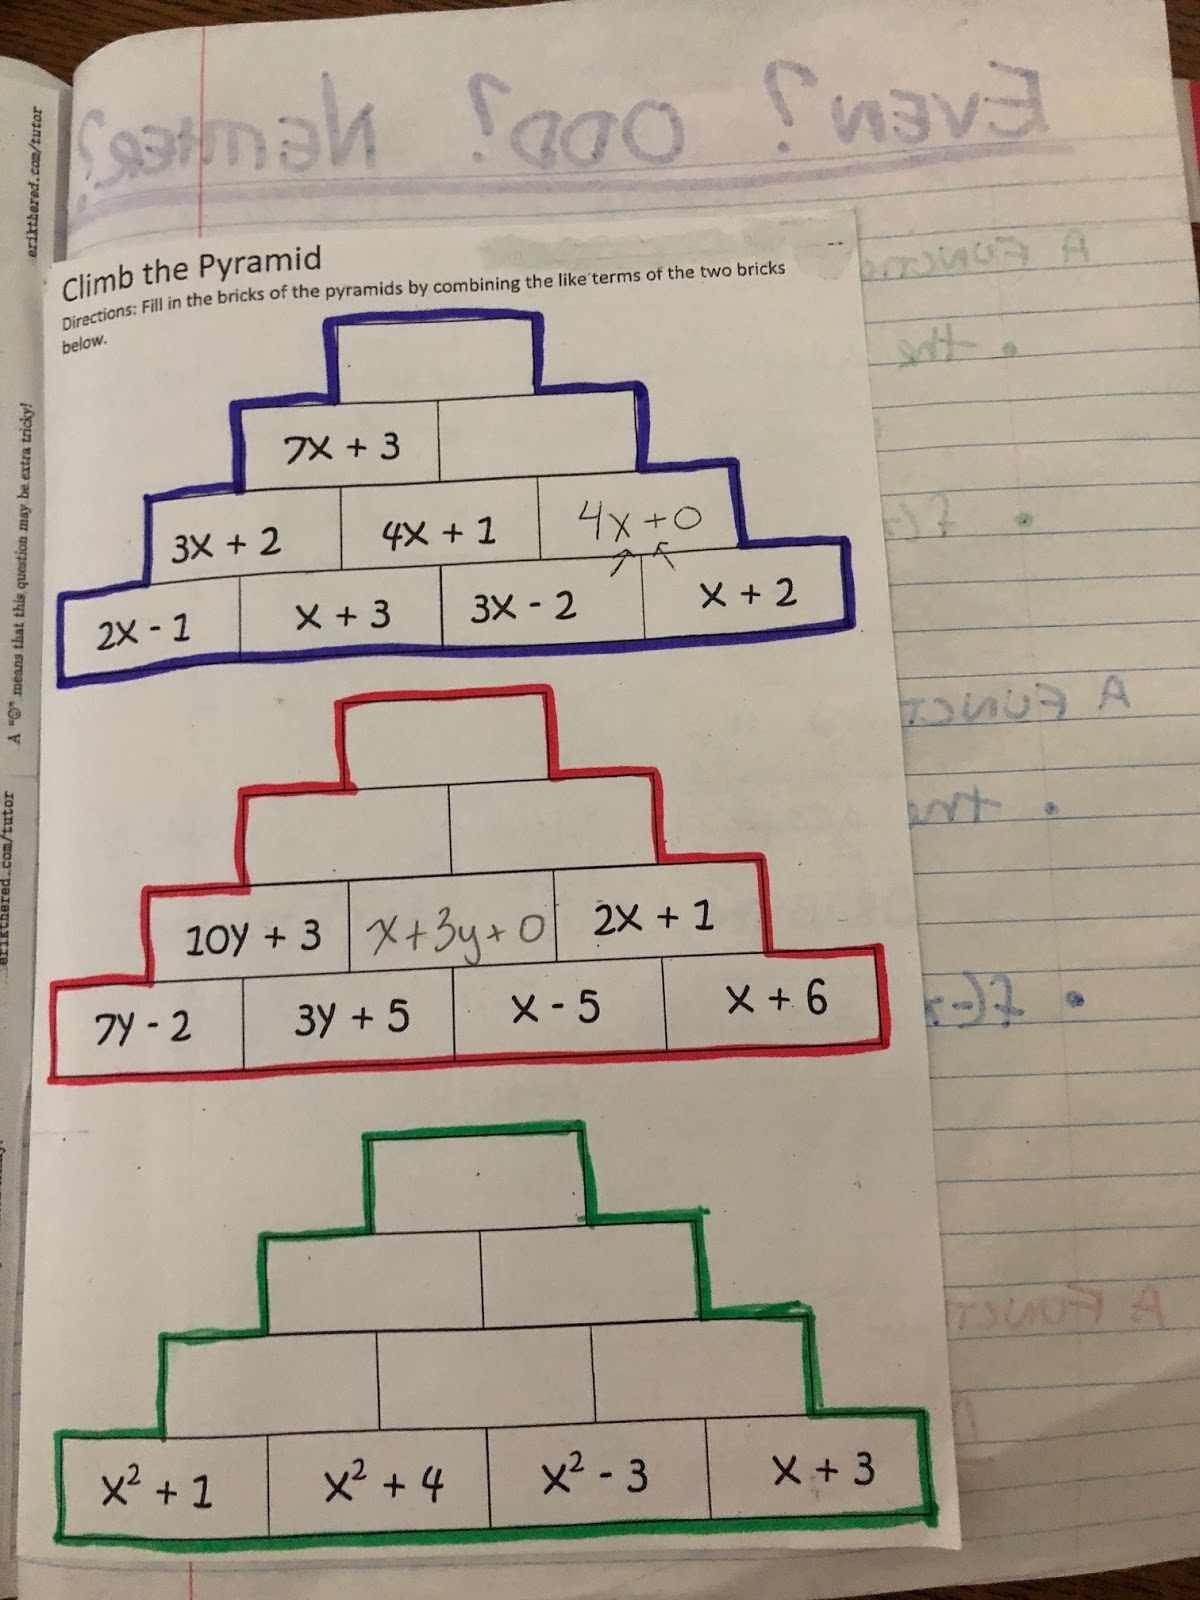 EVEN? ODD? NEITHER?
A FUNCTIO
• the
• f(-
A FUNCT
• the
• f(-x
A FUNCT
erikthered.com/tutor
A "☺" means that this question may be extra tricky!
erikthered.com/tutor
Climb the Pyramid
Directions: Fill in the bricks of the pyramids by combining the like terms of the two bricks
below.
7X + 3
3X + 2 4X + 1 4x + 0
2X - 1 X + 3 3X - 2 X + 2
10Y + 3 x + 3y + 0 2X + 1
7Y - 2 3Y + 5 X - 5 X + 6
X² + 1 X² + 4 X² - 3 X + 3